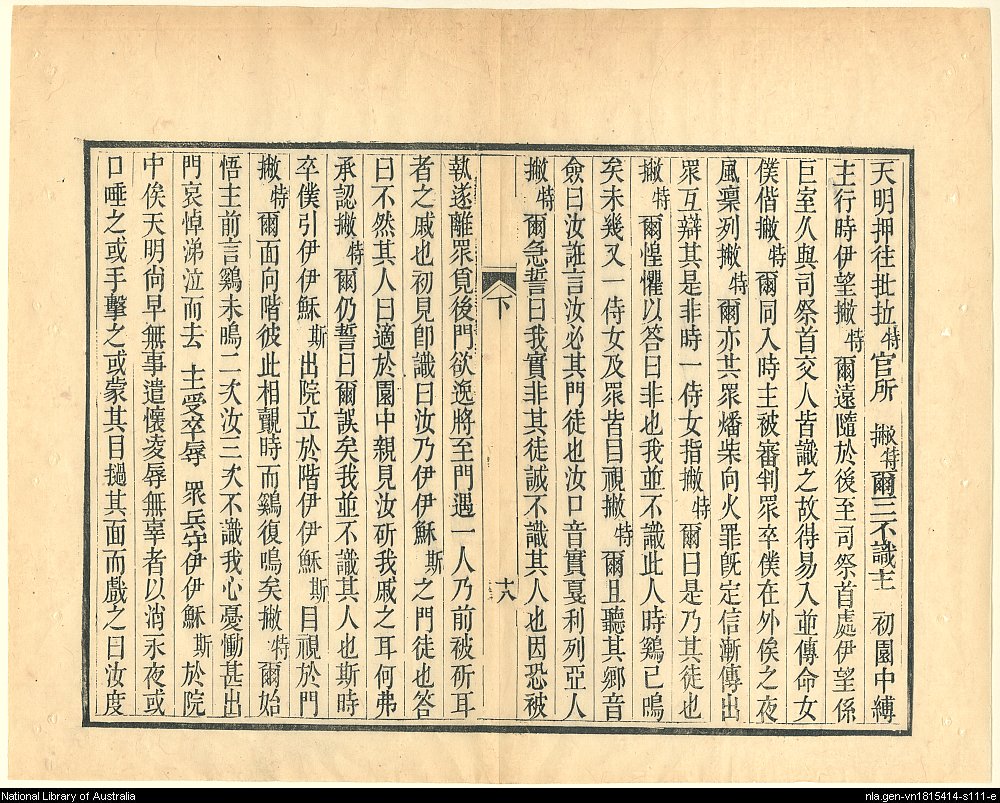 天明押往批拉特官所　撇特爾三不識主　初園中縛
主行時伊望撇特爾遠隨於後至司祭首處伊望係
巨室久與司祭首交人皆識之故得易入並傳命女
僕偕撇特爾同入時主被審判眾卒僕在外俟之夜
風稟列撇特爾亦共眾燔柴向火罪既定信漸傳出
眾互辯其是非時一侍女指撇特爾曰是乃其徒也
撇特爾惶懼以答曰非也我並不識此人時鷄已鳴
矣未幾又一侍女及眾皆目視撇特爾且聽其鄉音
僉曰汝誑言汝必其門徒也汝口音實戛利列亞人
撇特爾急誓曰我實非其徒誠不識其人也因恐被
下
十八
執遂離眾覓後門欲逸將至門遇一人乃前被斫耳
者之戚也初見卽識曰汝乃伊伊穌斯之門徒也答
曰不然其人曰適於園中親見汝斫我戚之耳何弗
承認撇特爾仍誓曰爾誤矣我並不識其人也斯時
卒僕引伊伊穌斯出院立於階伊伊穌斯目視於門
撇特爾面向階彼此相覿時而鷄復鳴矣撇特爾始
悟主前言鷄未鳴二次汝三次不識我心憂慟甚出
門哀悼涕泣而去　主受卒辱　眾兵守伊伊穌斯於院
中俟天明尙早無事遣懷凌辱無辜者以消永夜或
口唾之或手擊之或蒙其目撾其面而戲之曰汝度
National Library of Australia
nla.gen-vn1815414-s111-e